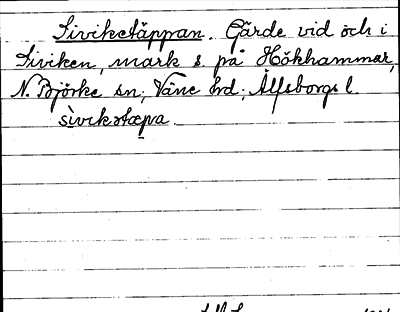 Siviketäppan. Gärde vid och i
Siviken, mark s. på Hökhammar,
N. Björke sn; Väne hd; Älfsborgs l.
sìvikstæpa